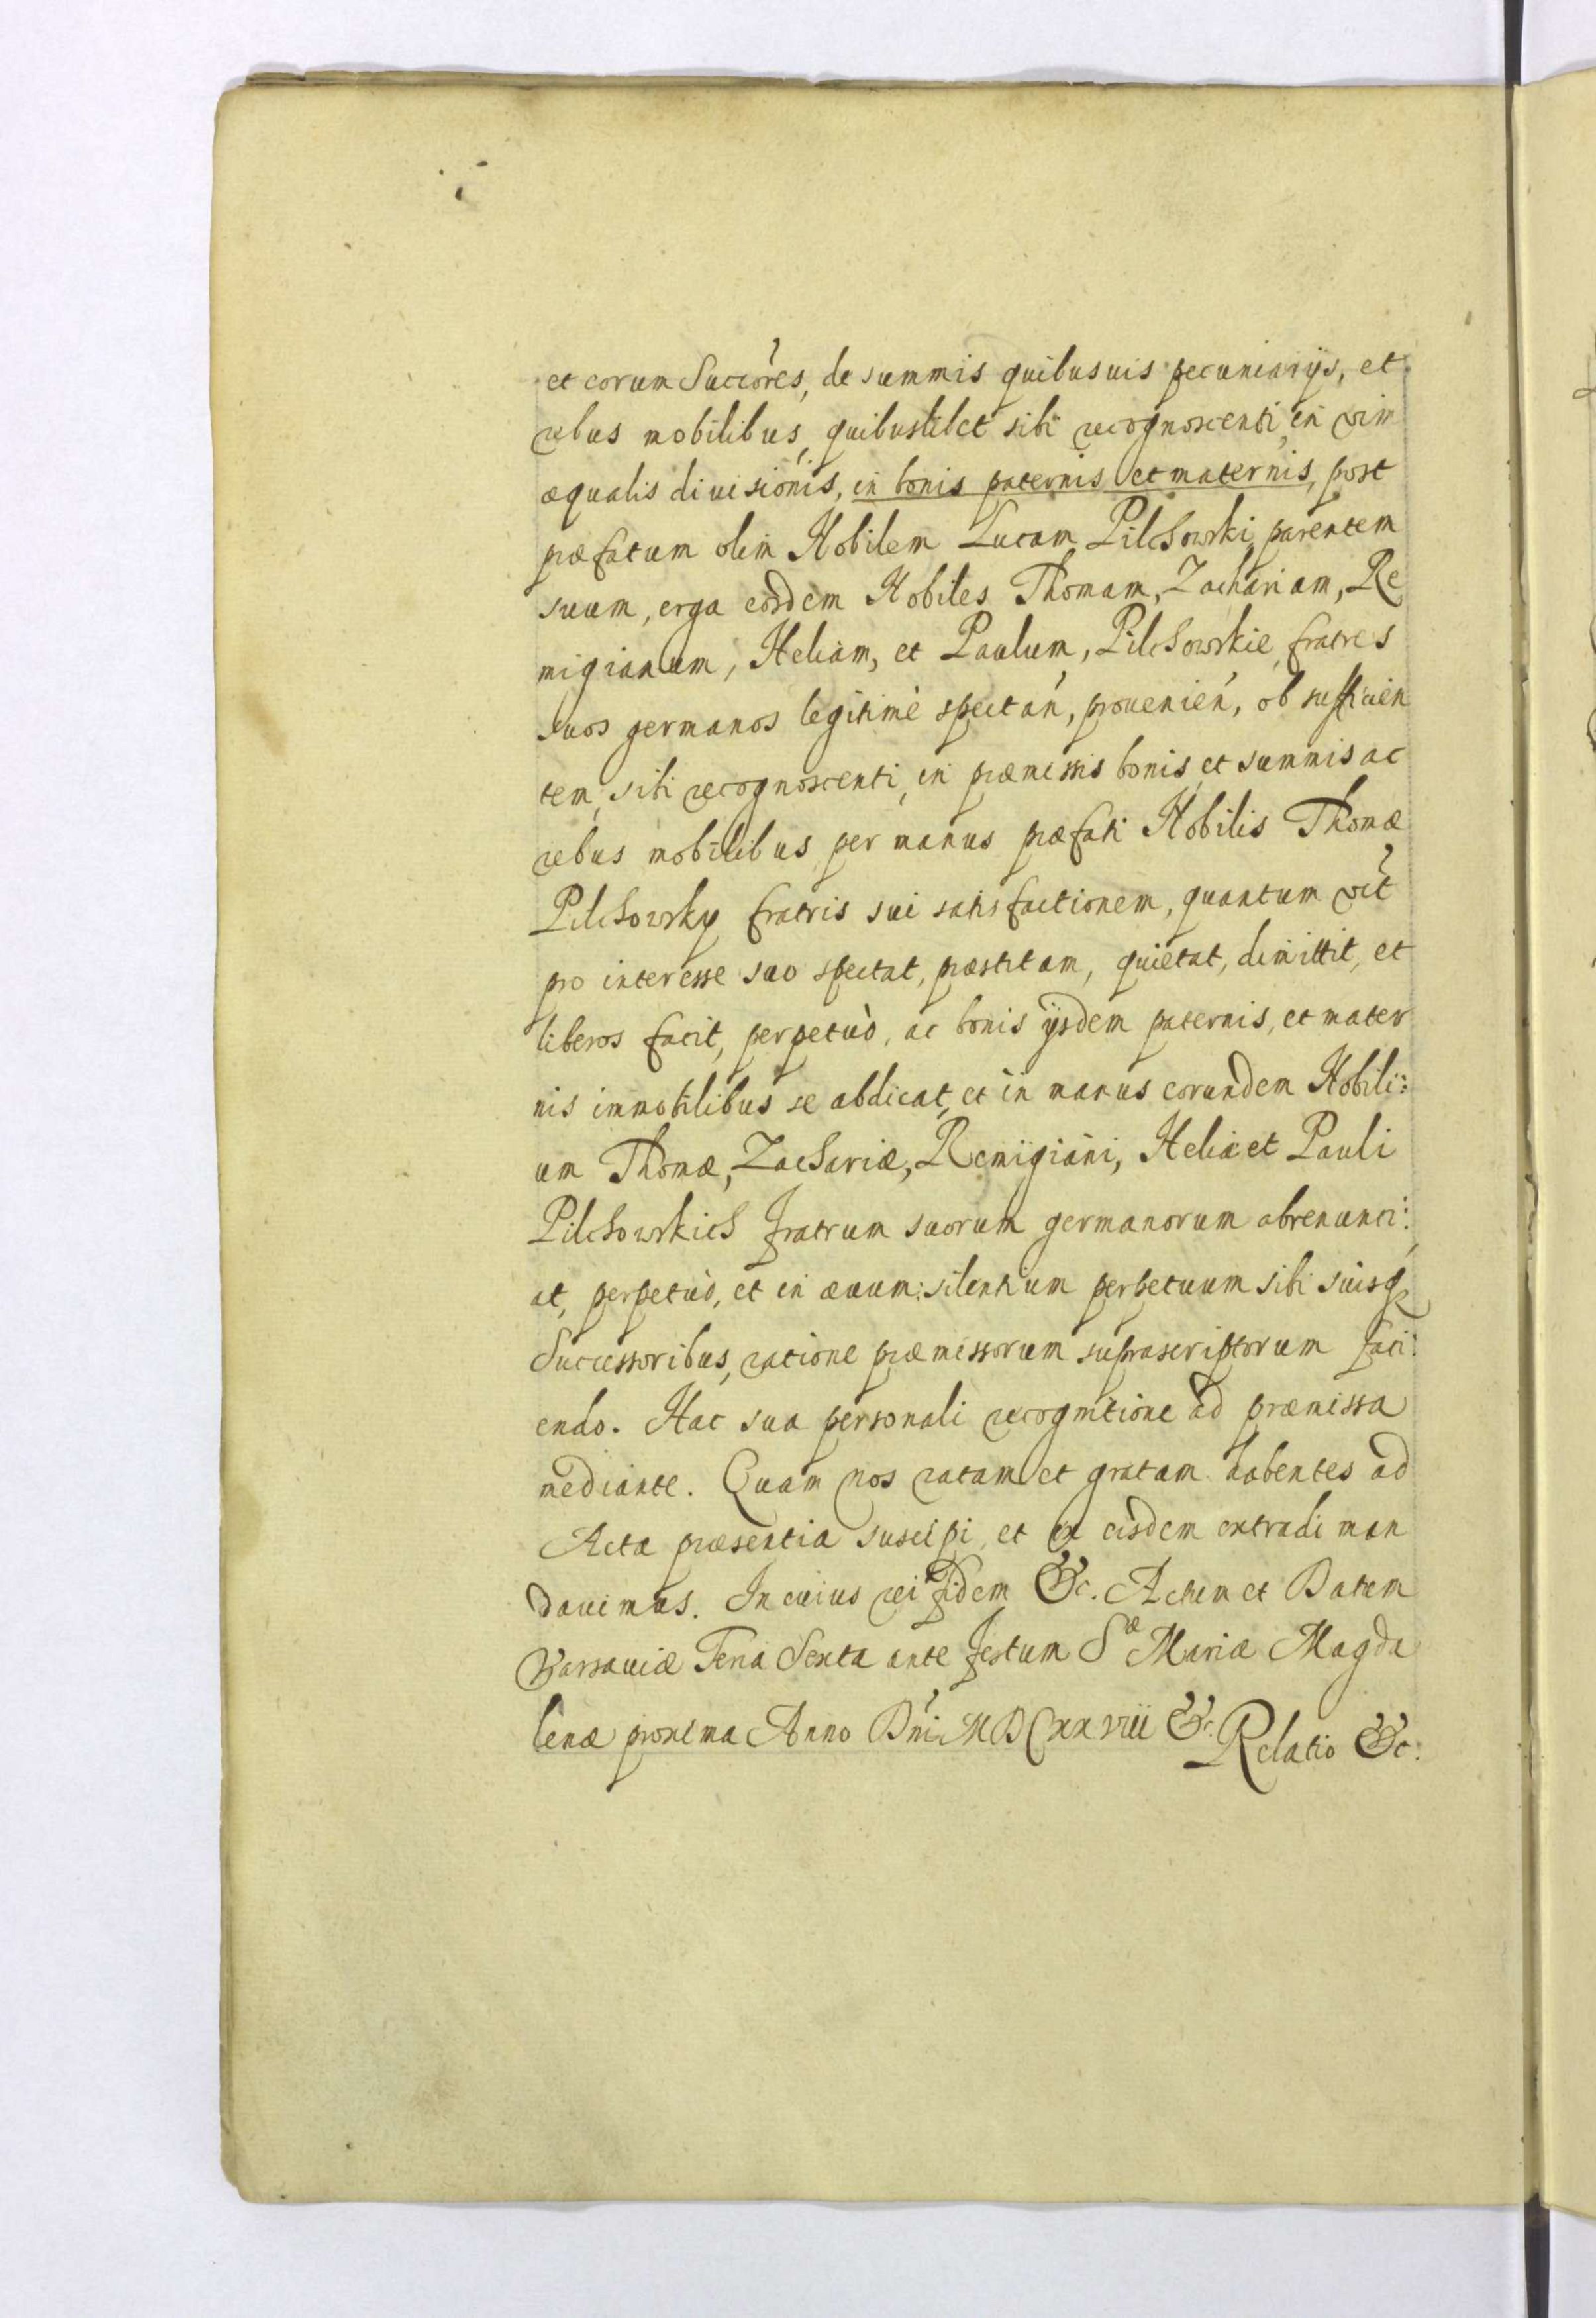 et eorum Succóres, de summis quibusuis pecuniarijs, et
rebus mobilibus, quibuslibet sibi recognoscenti, in vim
æqualis diuisionis, in bonis paternis et maternis, post
præfatum olim Nobilem Lucam Pilchowski, parentem
suum, erga eosdem Nobiles Thomam, Zachariam, Re
migianum, Heliam, et Paulum, Pilchowskie, fratres
suos germanos legitimè spectań, prouenień, ob sufficien
tem, sibi recognoscenti, in præmissis bonis, et summis ac
rebus mobilibus per manus præfati Nobilis Thomæ
Pilchowsky fratris sui satisfactionem, quantum vt́
pro interesse suo spectat, præstitam, quietat, dimittit, et
liberos facit, perpetuò, ac bonis ijsdem paternis, et mater
nis immobilibus se abdicat, et in manus eorundem Nobili:
um Thomæ, Zachariæ, Remigiani, Heliæ et Pauli
Pilchowskich fratrum suorum germanorum abrenunci:
at, perpetuò, et in æuum: silentium perpetuum sibi suisq
Successoribus, ratione præmissorum suprascriptorum faci:
endo. Hac sua personali recognitione ad præmissa
mediante. Quam nos ratam et gratam habentes ad
Acta præsentia suscipi, et ex eisdem extradi man
dauimus. In cuius rei fidem &c. Actum et Datum
Varsauiæ Feria Sexta ante festum Sæ Mariæ Magda
lenæ proxima Anno Dńi MDCxxviii &c. Relatio &c.